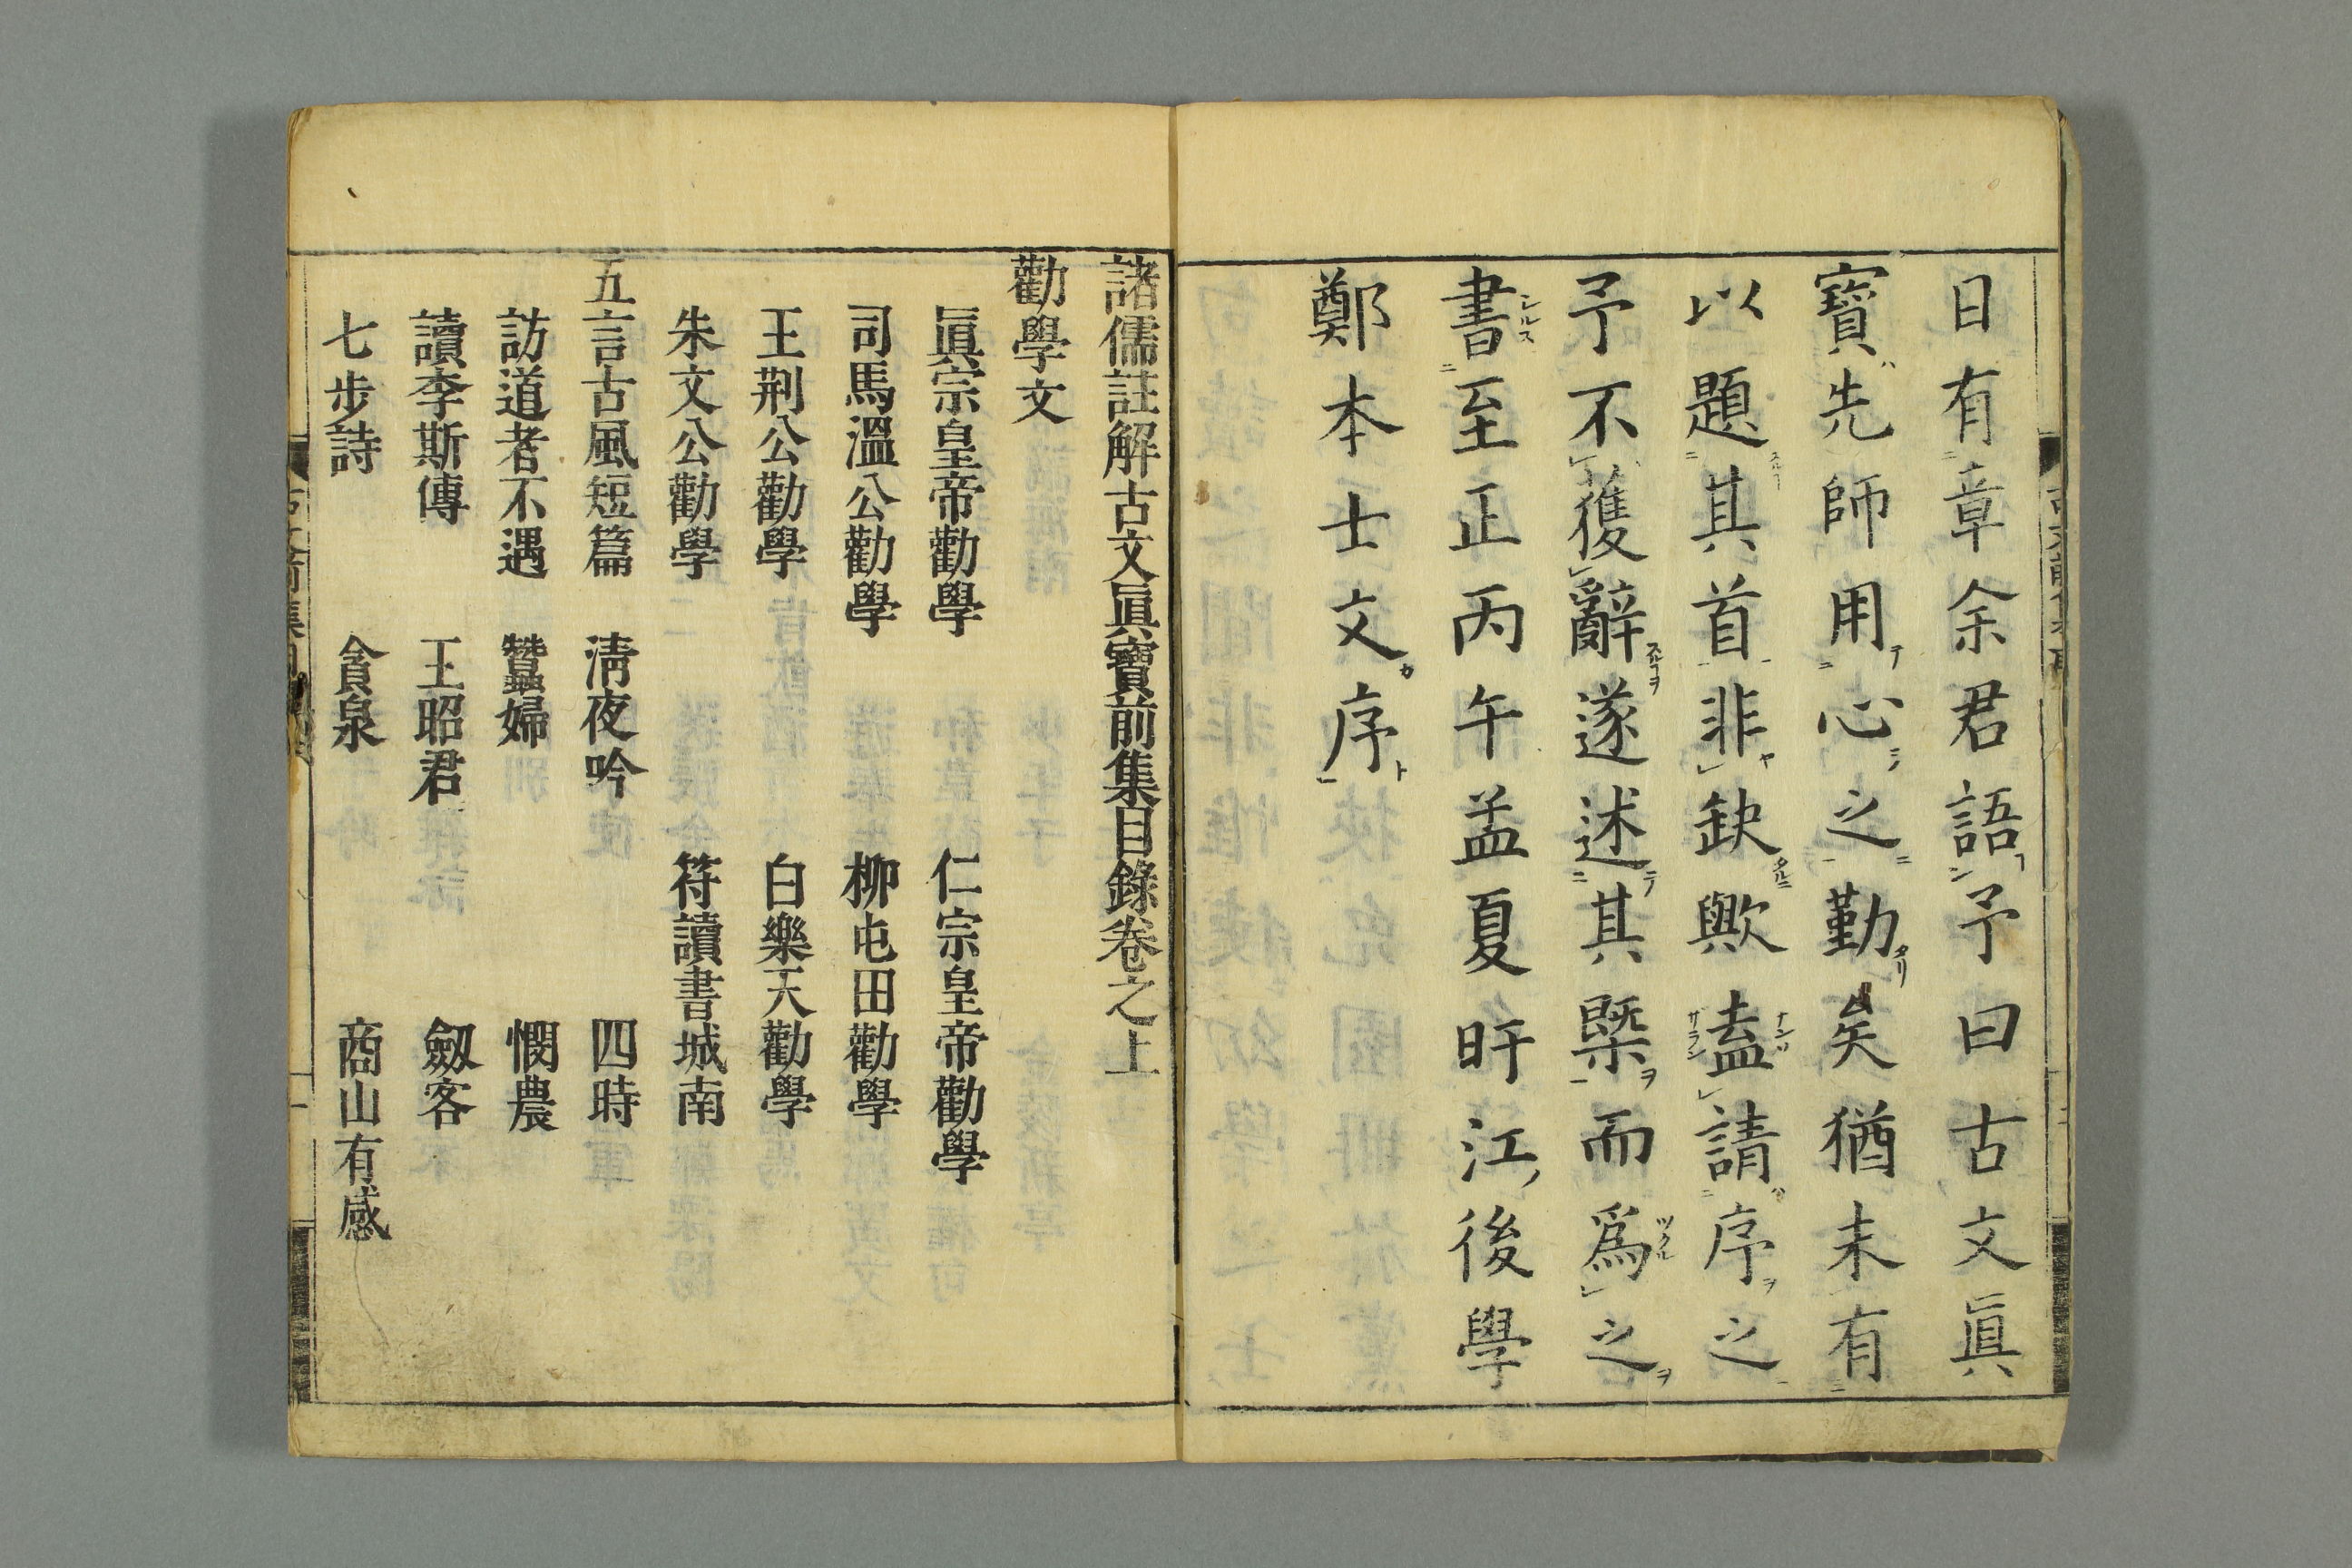 日有章余君語予曰古文眞
寳先師用心之勤矣猶未有
以題其首非缺歟盍請序之
予不獲辭遂述其槩而爲之
書至正丙午孟夏旴江後學
鄭本士文序
諸儒註解古文眞寳前集目錄卷之上
勸學文
眞宗皇帝勸學 仁宗皇帝勸學
司馬溫公勸學 柳屯田勸學
王荆公勸學 白樂天勸學
朱文公勸學 符讀書城南
五言古風短篇 淸夜吟 四時
訪道者不遇 蠶婦 憫農
讀李斯傳 王昭君 劔客
七步詩 貪泉 商山有感